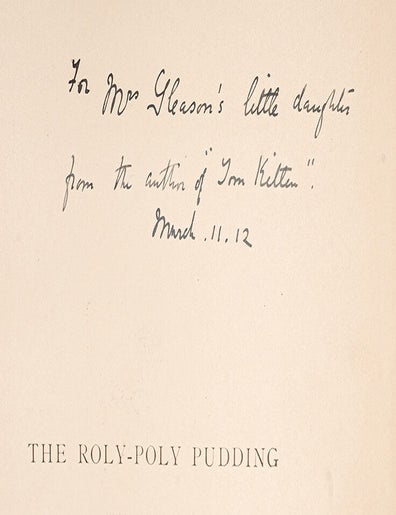 For Mrs Gleason's little daughter
from the author of "Tom Kitten".
March.11.12
THE ROLY-POLY PUDDING